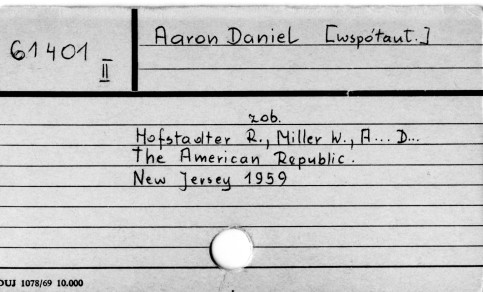 61401
II
Aaron Daniel [współaut.]
zob.
Hofstadter R., Miller W., A... D...
The American Republic.
New Jersey 1959
DUJ 1078/69 10.000